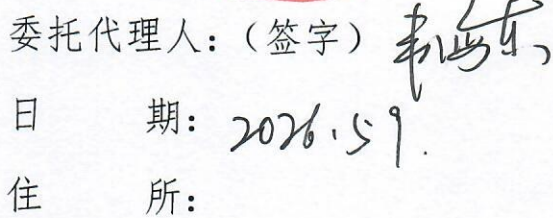 委托代理人：（签字）韦海东
日 期：2026.5 9.
住 所：